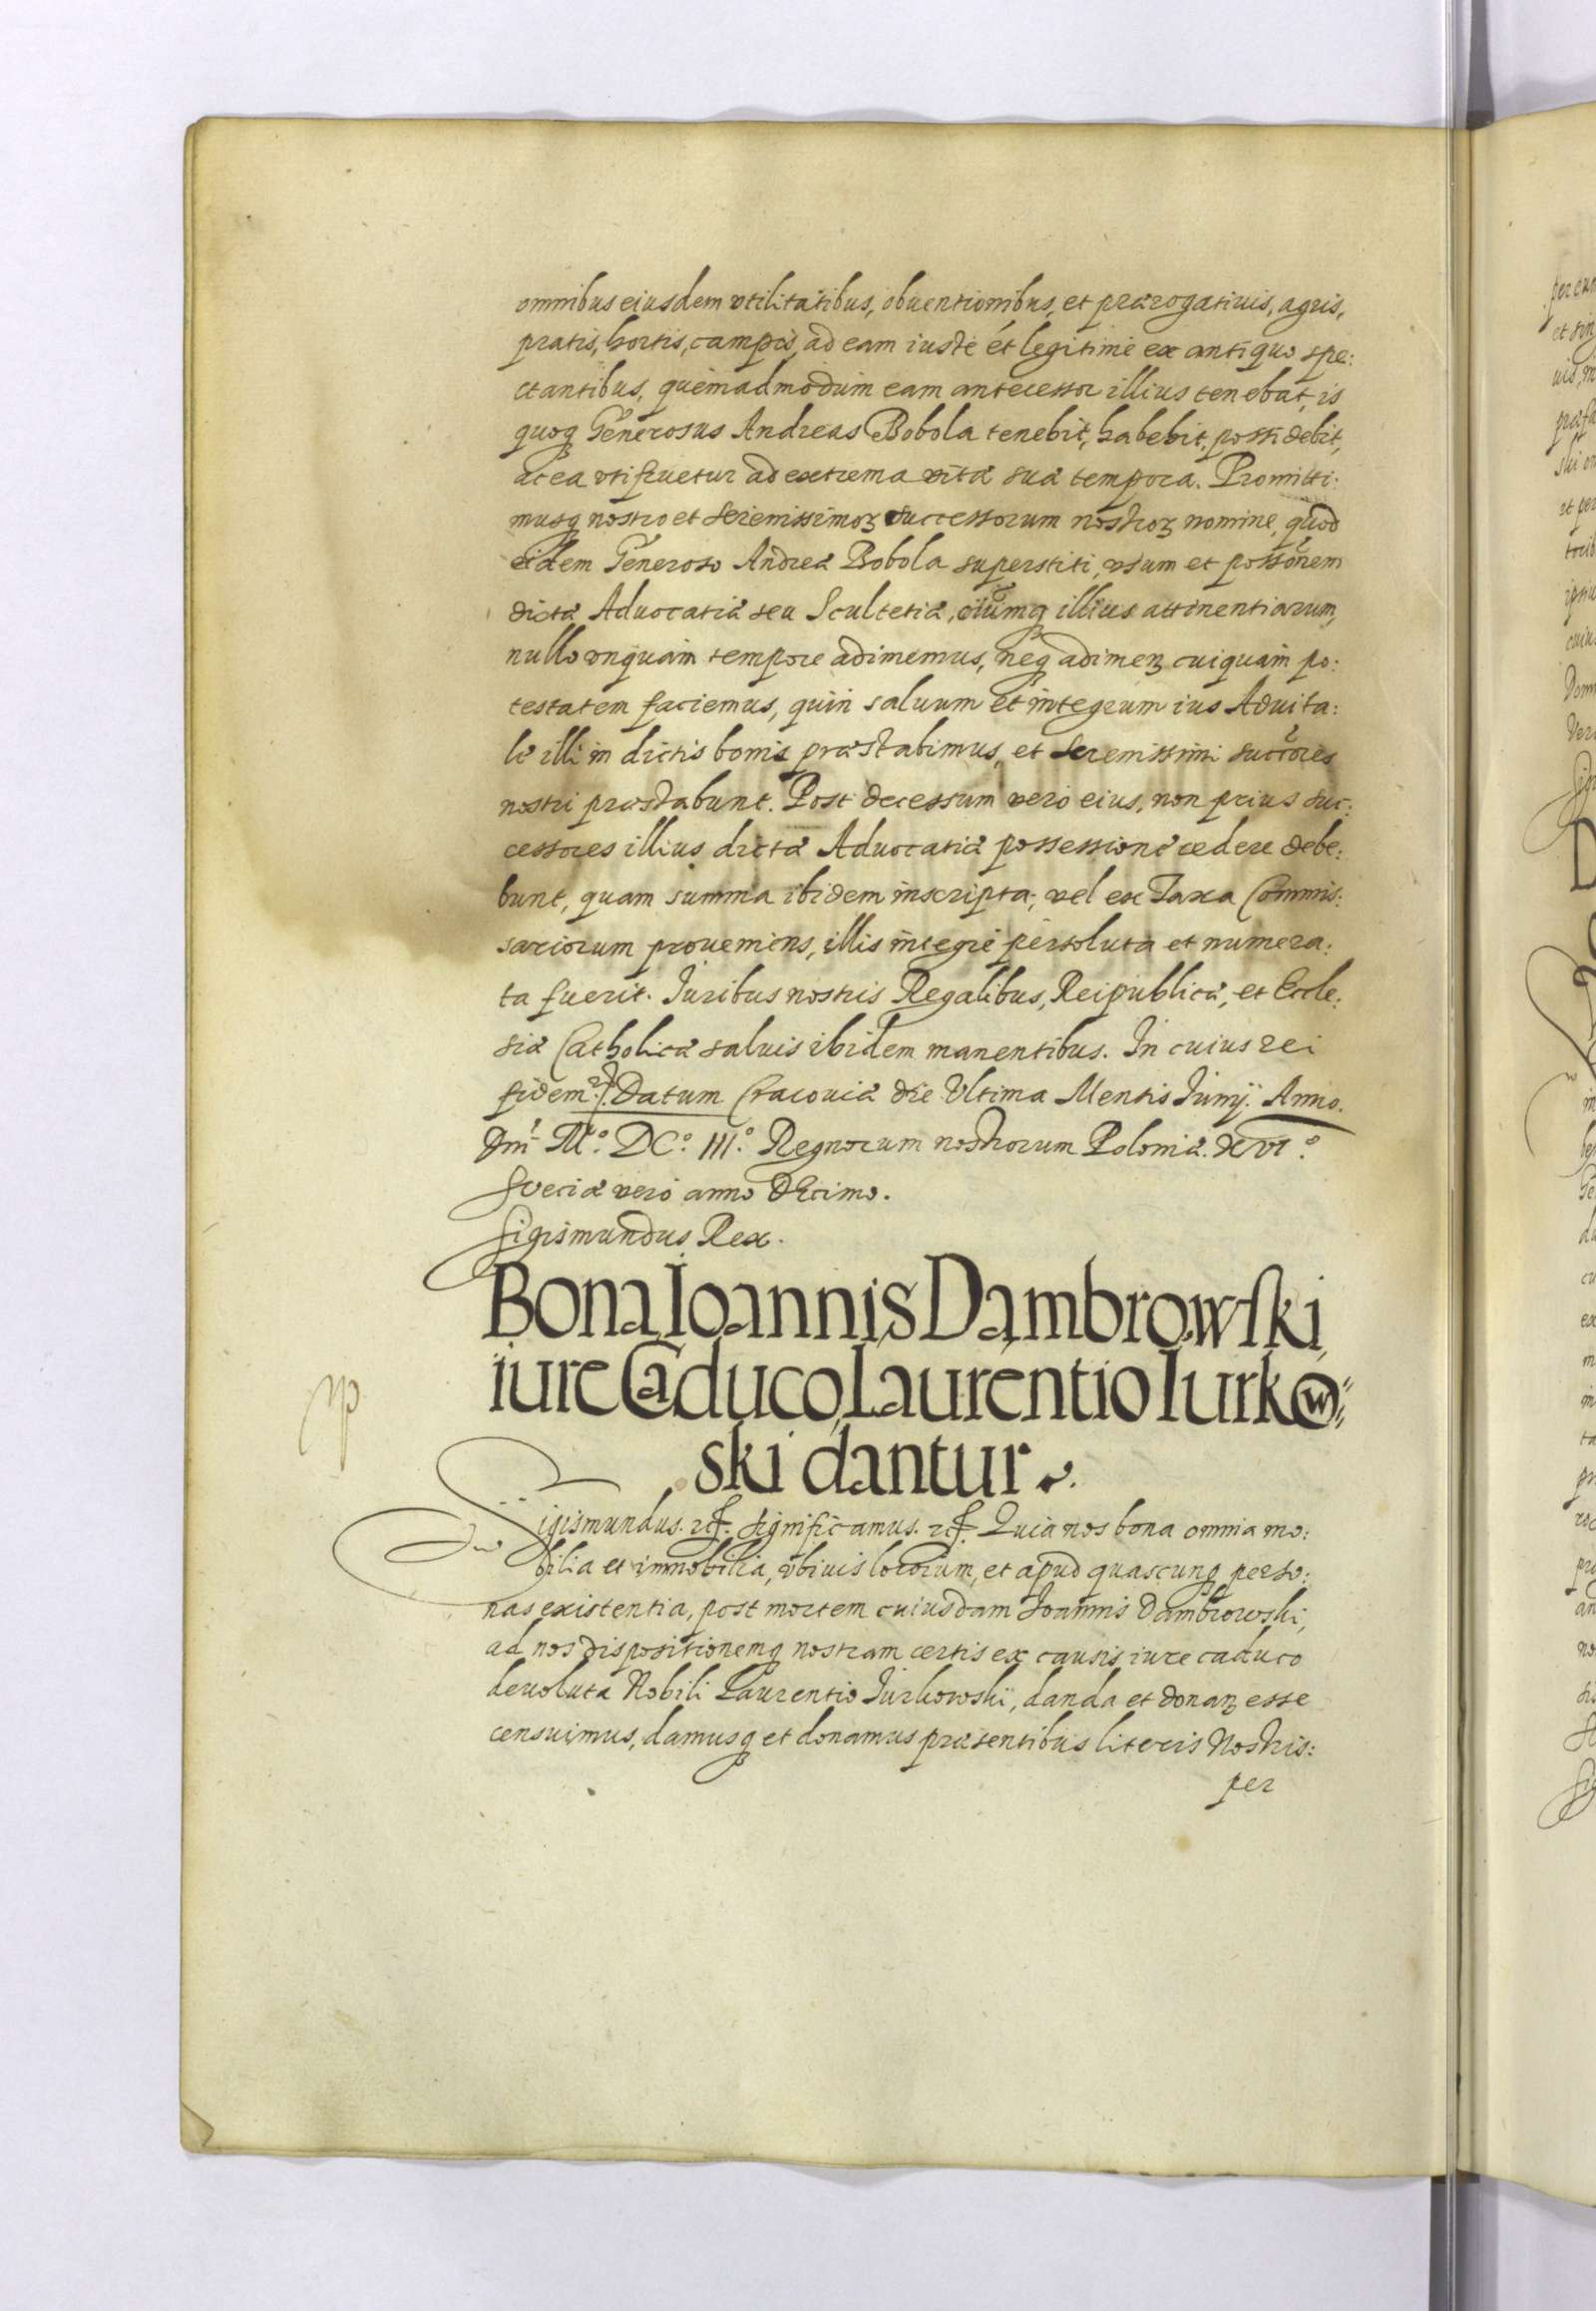 omnibus eiusdem vtilitatibus, obuentionibus, et prærogatiuis, agris,
pratis, hortis, campis, ad eam iusté et legitimé ex antiquo spe:
ctantibus, quemadmodum eam antecessor illius tenebat, is
quoq Generosus Andreas Bobola tenebit, habebit, possidebit,
ac ea vti fruetur ad extrema vitæ suæ tempora. Promitti:
musq nostro et Serenissimoꝝ successorum nostroꝝ nomine, quod
eidem Generoso Andreæ Bobola superstiti, vsum et possonem
dictæ Aduocatiæ seu Scultetiæ, oiumq illius attinentiarum,
nullo vnquam tempore adimemus, neq adimenꝝ cuiquam po:
testatem faciemus, quin saluum et integrum ius Aduita:
le illi in dictis bonis præstabimus, et Serenissimi succores
nostri præstabunt. Post decessum vero eius, non prius suc:
cessores illius dictæ Aduocatiæ possessione cedere debe:
bunt, quam summa ibidem inscripta, vel ex Taxa Commis:
sariorum proueniens, illis integré persoluta et numera:
ta fuerit. Iuribus nostris Regalibus, Reipublicæ, et Eccle:
siæ Catholicæ saluis ibidem manentibus. In cuius rei
fidem. Datum Cracouiæ die Vltima Mensis Iunij. Anno.
Dni M.º DC.º III.º Regnorum nostrorum Poloniæ. XVIº.
Sueciæ vero anno Decimo.
Sigismundus Rex.
Bona Ioannis Dambrowski
iure Caduco Laurentio Iurkow
ski dantur.
Sigismundus. etc. Significamus. etc. Quia nos bona omnia mo:
bilia et immobilia, vbiuis locorum, et apud quascunq perso:
nas existentia, post mortem cuiusdam Ioannis Dambrowski,
ad nos dispositionemq nostram certis ex causis iure caduco
deuoluta Nobili Laurentio Iurkowski, danda et donanꝝ esse
censuimus, damusq et donamus præsentibus literis Nostris:
per